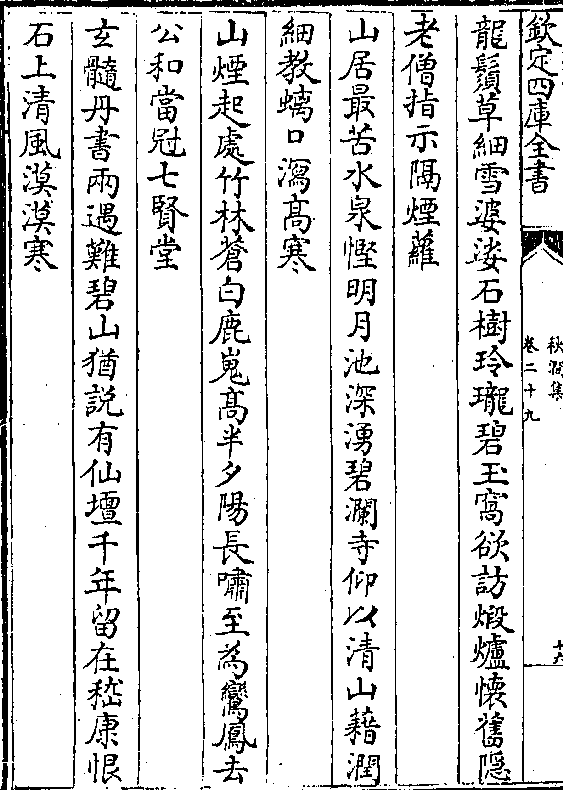 欽定四庫全書
秋澗集
卷二十九
十六
龍鬚草細雪婆娑石樹玲瓏碧玉窩欲訪煅爐懷舊隠
老僧指示隔煙蘿
山居最苦水泉慳明月池深湧碧瀾寺仰以清山藉潤
細教螭口瀉髙寒
山煙起處竹林蒼白鹿嵬髙半夕陽長嘯至為鸞鳳去
公和當冠七賢堂
玄髓丹書兩遇難碧山猶説有仙壇千年留在嵇康恨
石上清風漠漠寒